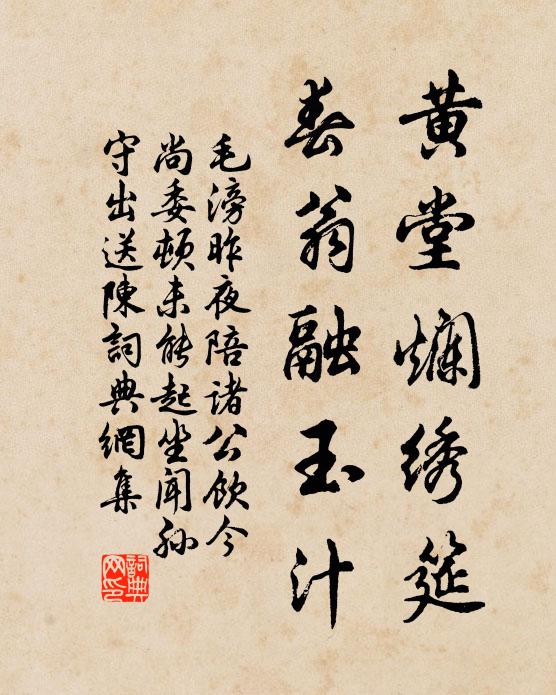 黄堂爛绣筵
春翁融玉汁
毛滂昨夜陪諸公飲今
尚委頓未能起坐聞孙
守出送陳詞典網集
詞典网印